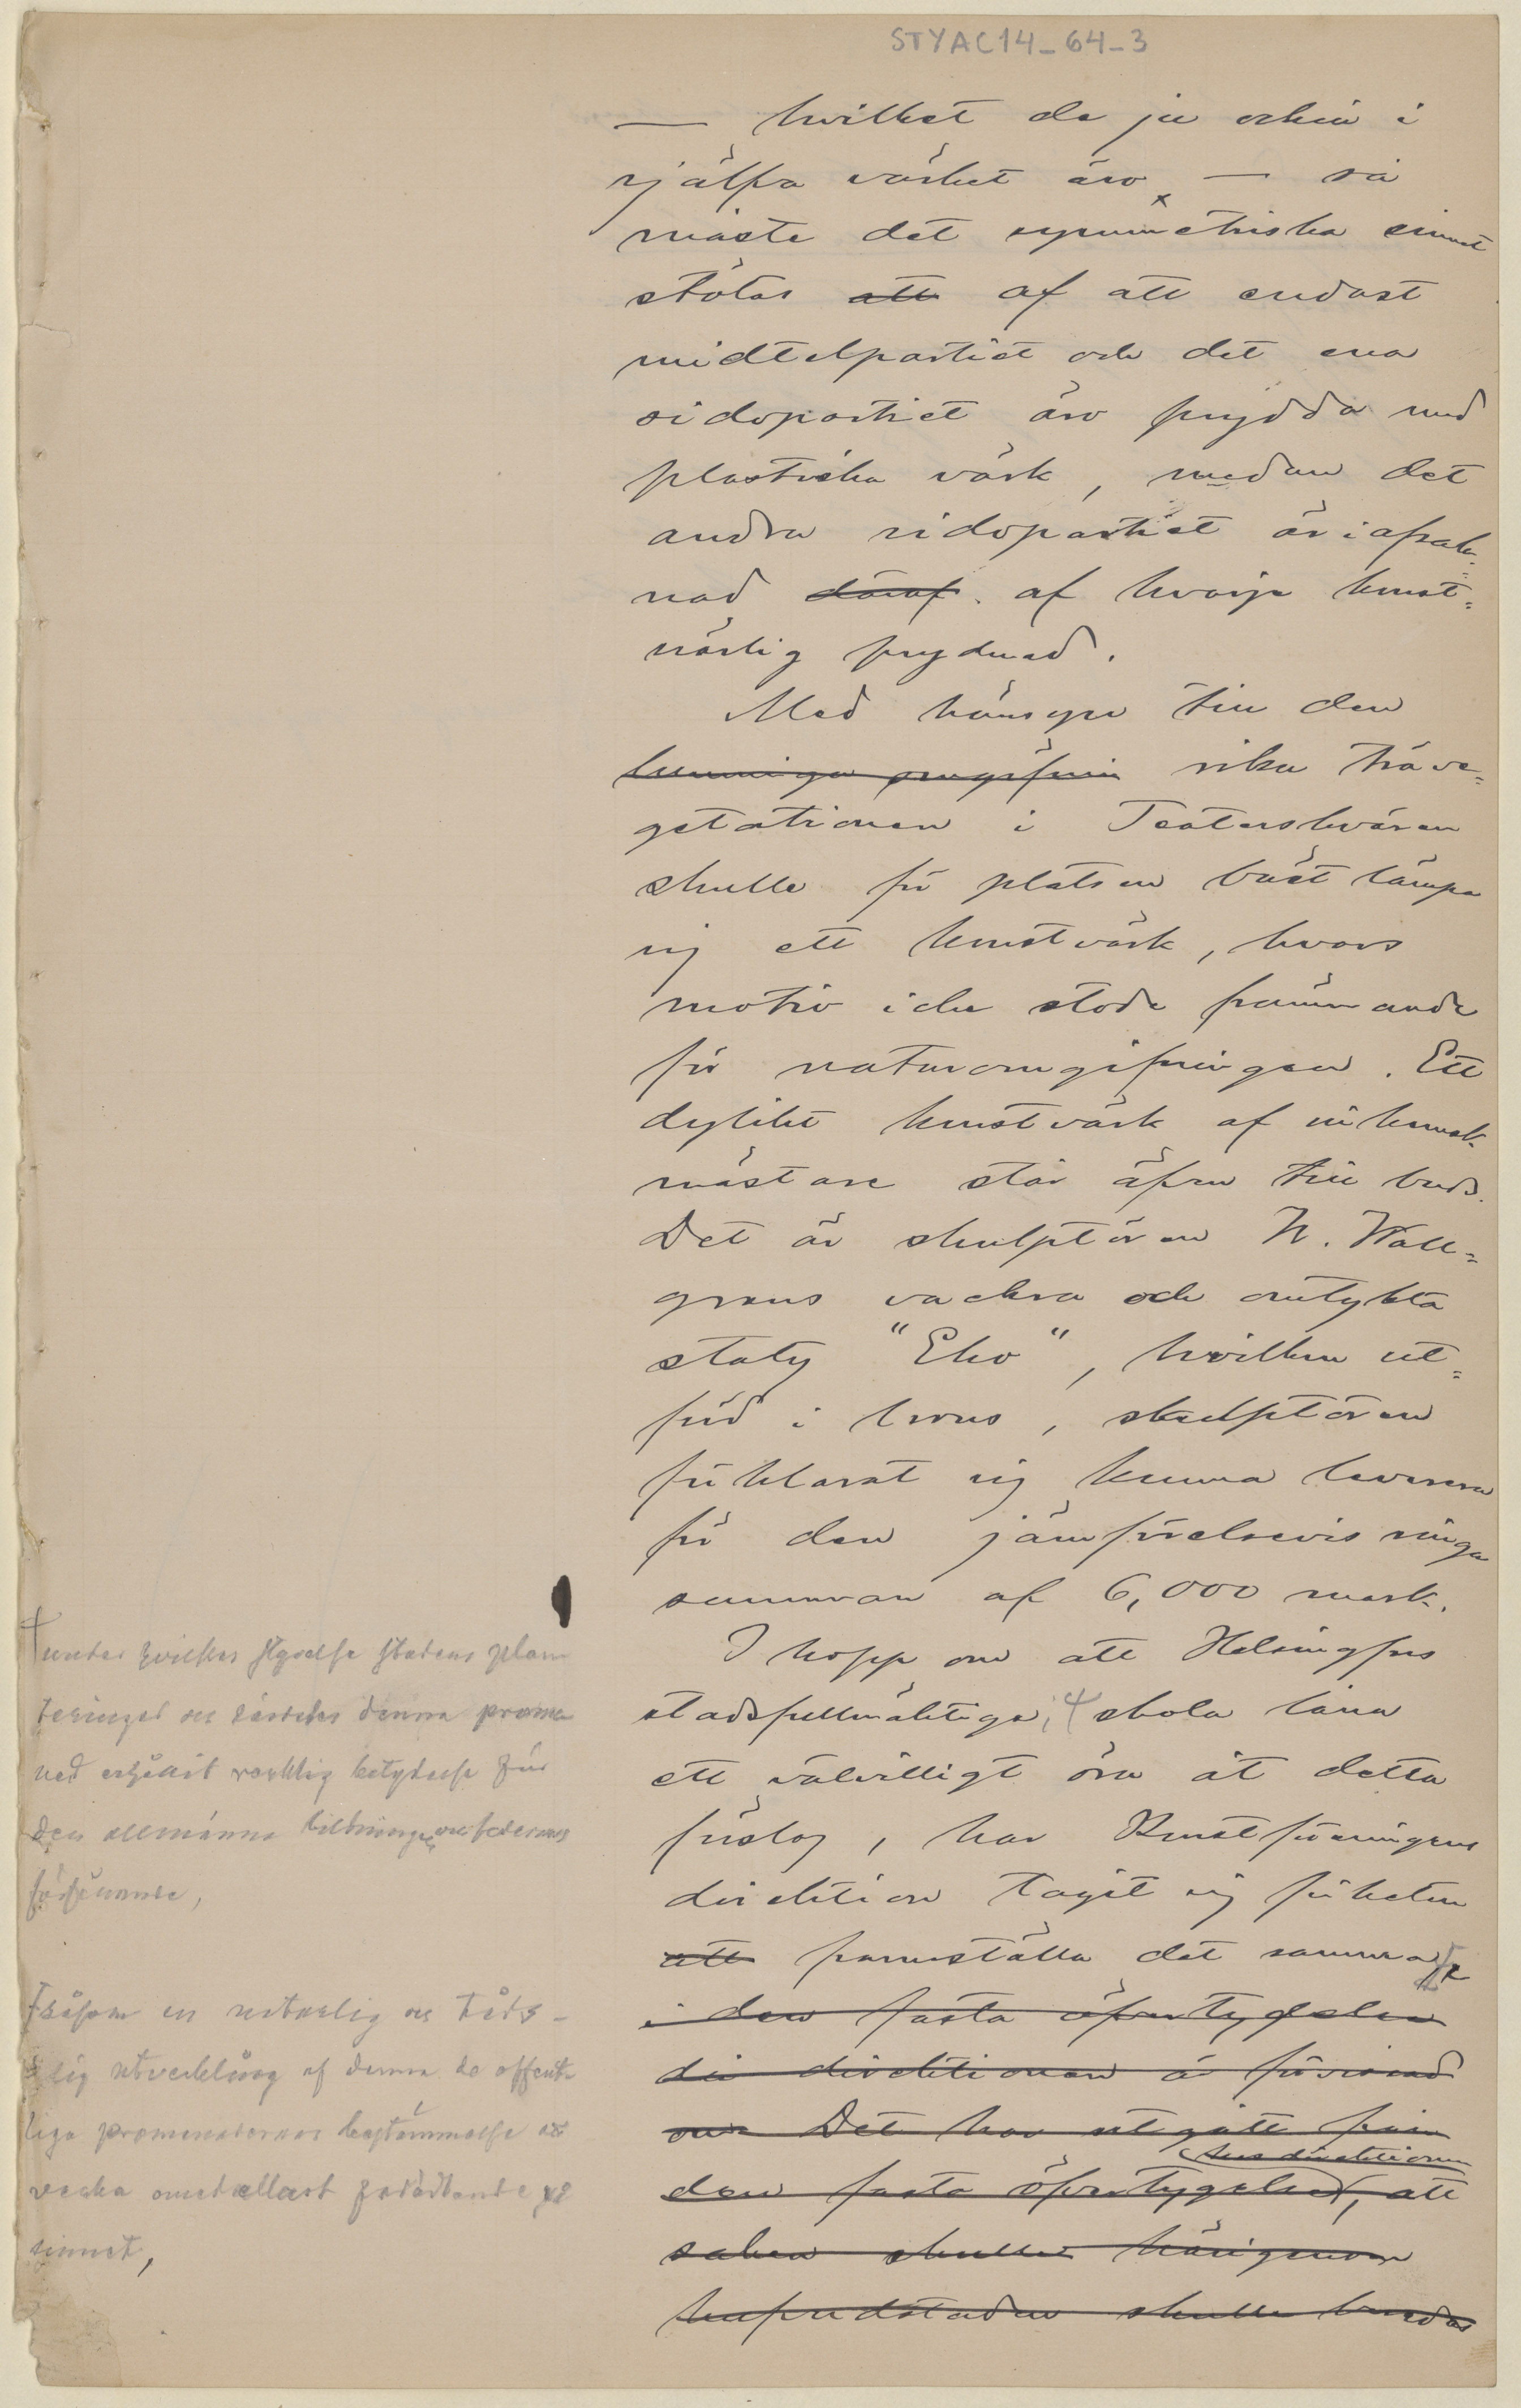 STYAC14_64_3
— hvilket de ju också i
sjölfva värket äro, — så
måste det symmetriska sinnet
stötas att af att endast
midtelpartiet och det ena
sidopartiet äro prydda med
plastiska värk, medan det
andra sidopartiet är i afsak-
nad däraf. af hvarje konst-
närlig prydnad.
Med hänsyn till den
rika träve-
getationen i Teaterskvären
skulle för platsen bäst lämpa
sig ett konstvärk, hvars
motiv icke stode främmande
för naturomgifningen. Ett
dylikt konstvärk af inhemsk
mästare står äfven till buds.
Det är skulptören V. Wall-
grens vackra och omtykta
staty "Eko", hvilken ut-
förd i brons, skulptören
förklarat sig kunna leverera
för den jämförelsevis ringa
summan af 6,000 mark.
I hopp om att Helsingfors
stadsfullmäktige, skola låna
ett välvilligt öra åt detta
förslag, har Konstföreningens
direktion tagit sig friheten
att framställa det samma
i den fasta öfvertygelsen
där direktionen är förvissad
om Det har utgått från
hos direktionen
den fasta öfvertygelsen, att
saken skulle härigenom
hufvudstaden skulle beredas
under hvilkas styrelse stadens plan
teringar och särskildt denna prome
nad erhållit verklig betydelse för
den allmänna bildningen och sedernas
förfinande,
såsom en naturlig och tids-
enlig utveckling af denna de offent
liga promenadernas bestämmelse att
verka omedelbart förädlande på
sinnet,